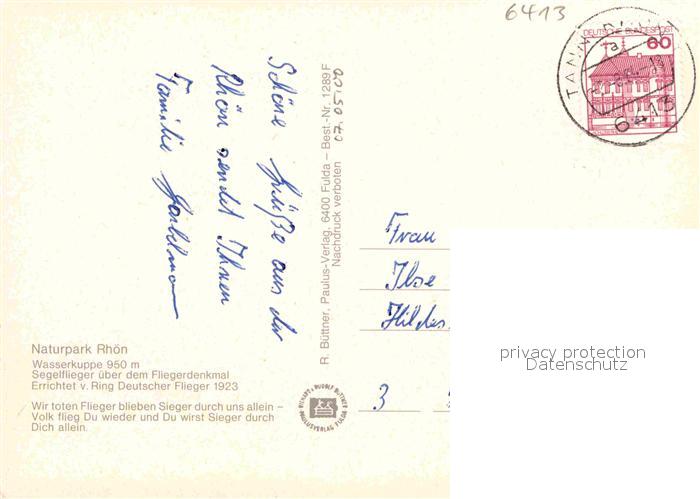 6413
DEUTSCHE BUNDESPOST
60
TANN
6413
Schöne Grüße aus der
Rhön sendet Ihnen
Familie
R. Büttner, Paulus-Verlag, 6400 Fulda – Best.-Nr. 1289 F
Nachdruck verboten
07.05.02
Frau
Ilse
Hildes
3
privacy protection
Datenschutz
Naturpark Rhön
Wasserkuppe 950 m
Segelflieger über dem Fliegerdenkmal
Errichtet v. Ring Deutscher Flieger 1923
Wir toten Flieger blieben Sieger durch uns allein –
Volk flieg Du wieder und Du wirst Sieger durch
Dich allein.
RICHARD u. RUDOLF BÜTTNER
PAULUSVERLAG FULDA